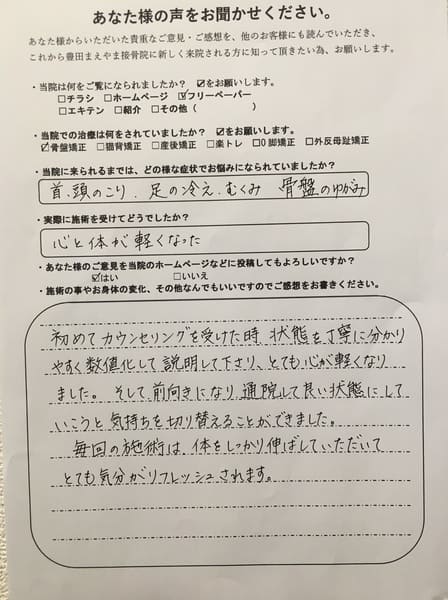 あなた様の声をお聞かせください。
あなた様からいただいた貴重なご意見・ご感想を、他のお客様にも読んでいただき、
これから豊田まえやま接骨院に新しく来院される方に知って頂きたい為、お願いします。
・当院は何をご覧になられましたか？ ☑をお願いします。
□チラシ □ホームページ ☑フリーペーパー
□エキテン □紹介 □その他（ ）
・当院での治療は何をされていましたか？ ☑をお願いします。
☑骨盤矯正 □猫背矯正 □産後矯正 □楽トレ □O脚矯正 □外反母趾矯正
・当院に来られるまでは、どの様な症状でお悩みになられていましたか？
首、頭のこり、足の冷え、むくみ 骨盤のゆがみ
・実際に施術を受けてどうでしたか？
心と体が軽くなった
・あなた様のご意見を当院のホームページなどに投稿してもよろしいですか？
☑はい □いいえ
・施術の事やお身体の変化、その他なんでもいいですのでご感想をお書きください。
初めてカウンセリングを受けた時、状態を丁寧に分かり
やすく数値化して説明して下さり、とても心が軽くなり
ました。そして、前向きになり、通院して良い状態にして
いこうと気持ちを切り替えることができました。
毎回の施術は、体をしっかり伸ばしていただいて
とても気分がリフレッシュされます。